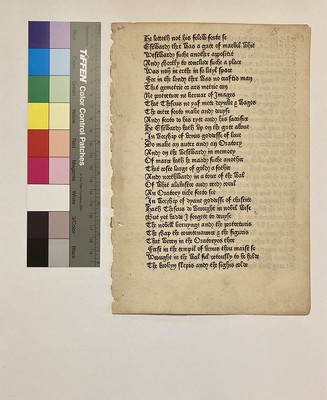 TIFFEN Color Control Patches
White
3/Color
Black
He letteth not his felow forto se
Estward ther was a gate of marbil whit
Westward suche another opposit
And shortly to conclude suche a place
Was non in erthe in so lityl space
For in the londe ther was no crafti man
That geometrie or ars metric can
Ne portreour ne kervar of Images
That Theseus ne yaf mete drynke & wages
The forto make and devyse
And forto do his ryte and his sacrifice
He Estward hath vp on the gate above
In worship of venus goddesse of love
Do make an auter and an Oratory
And on the westward in memory
Of marce hath it maad suche another
That coste large of gold a fother
And northward in a tour of the wal
Of whit alabastre and reed coral
An Oratory riche forto see
In worship of dyane goddesse of chastite
Hath Theseus do wrought in nobil wise
But yet hadde I forgete to devyse
The nobell keruynge and the portretures
The shap the contenaunce & the figures
That weren in the Oratoryes thre
First in the tempil of venus thou maist se
Wrought in the wal ful petously to be holde
The brokyn slepis and the sighis colde